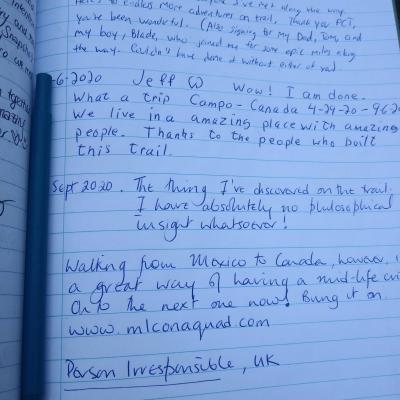 Here's to endless more adventures on trail. Thank you PCT,
you've been wonderful. (Also signing for my Dad, Tom, and
my boy, Blade, who joined me for some epic miles along
the way. Couldn't have done it without either of you)
-6-2020 Jeff W Wow! I am done.
What a trip Campo-Canada 4-24-20 - 9620
We live in a amazing place with amazing
people. Thanks to the people who built
this trail.
Sept 2020. The thing I've discovered on the trail.
I have absolutely no philosophical
insight whatsoever!
Walking from Mexico to Canada, however,
a great way of having a mid-life
On to the next one now! Bung it on
www.mlconaquad.com
Person Irresponsible, UK